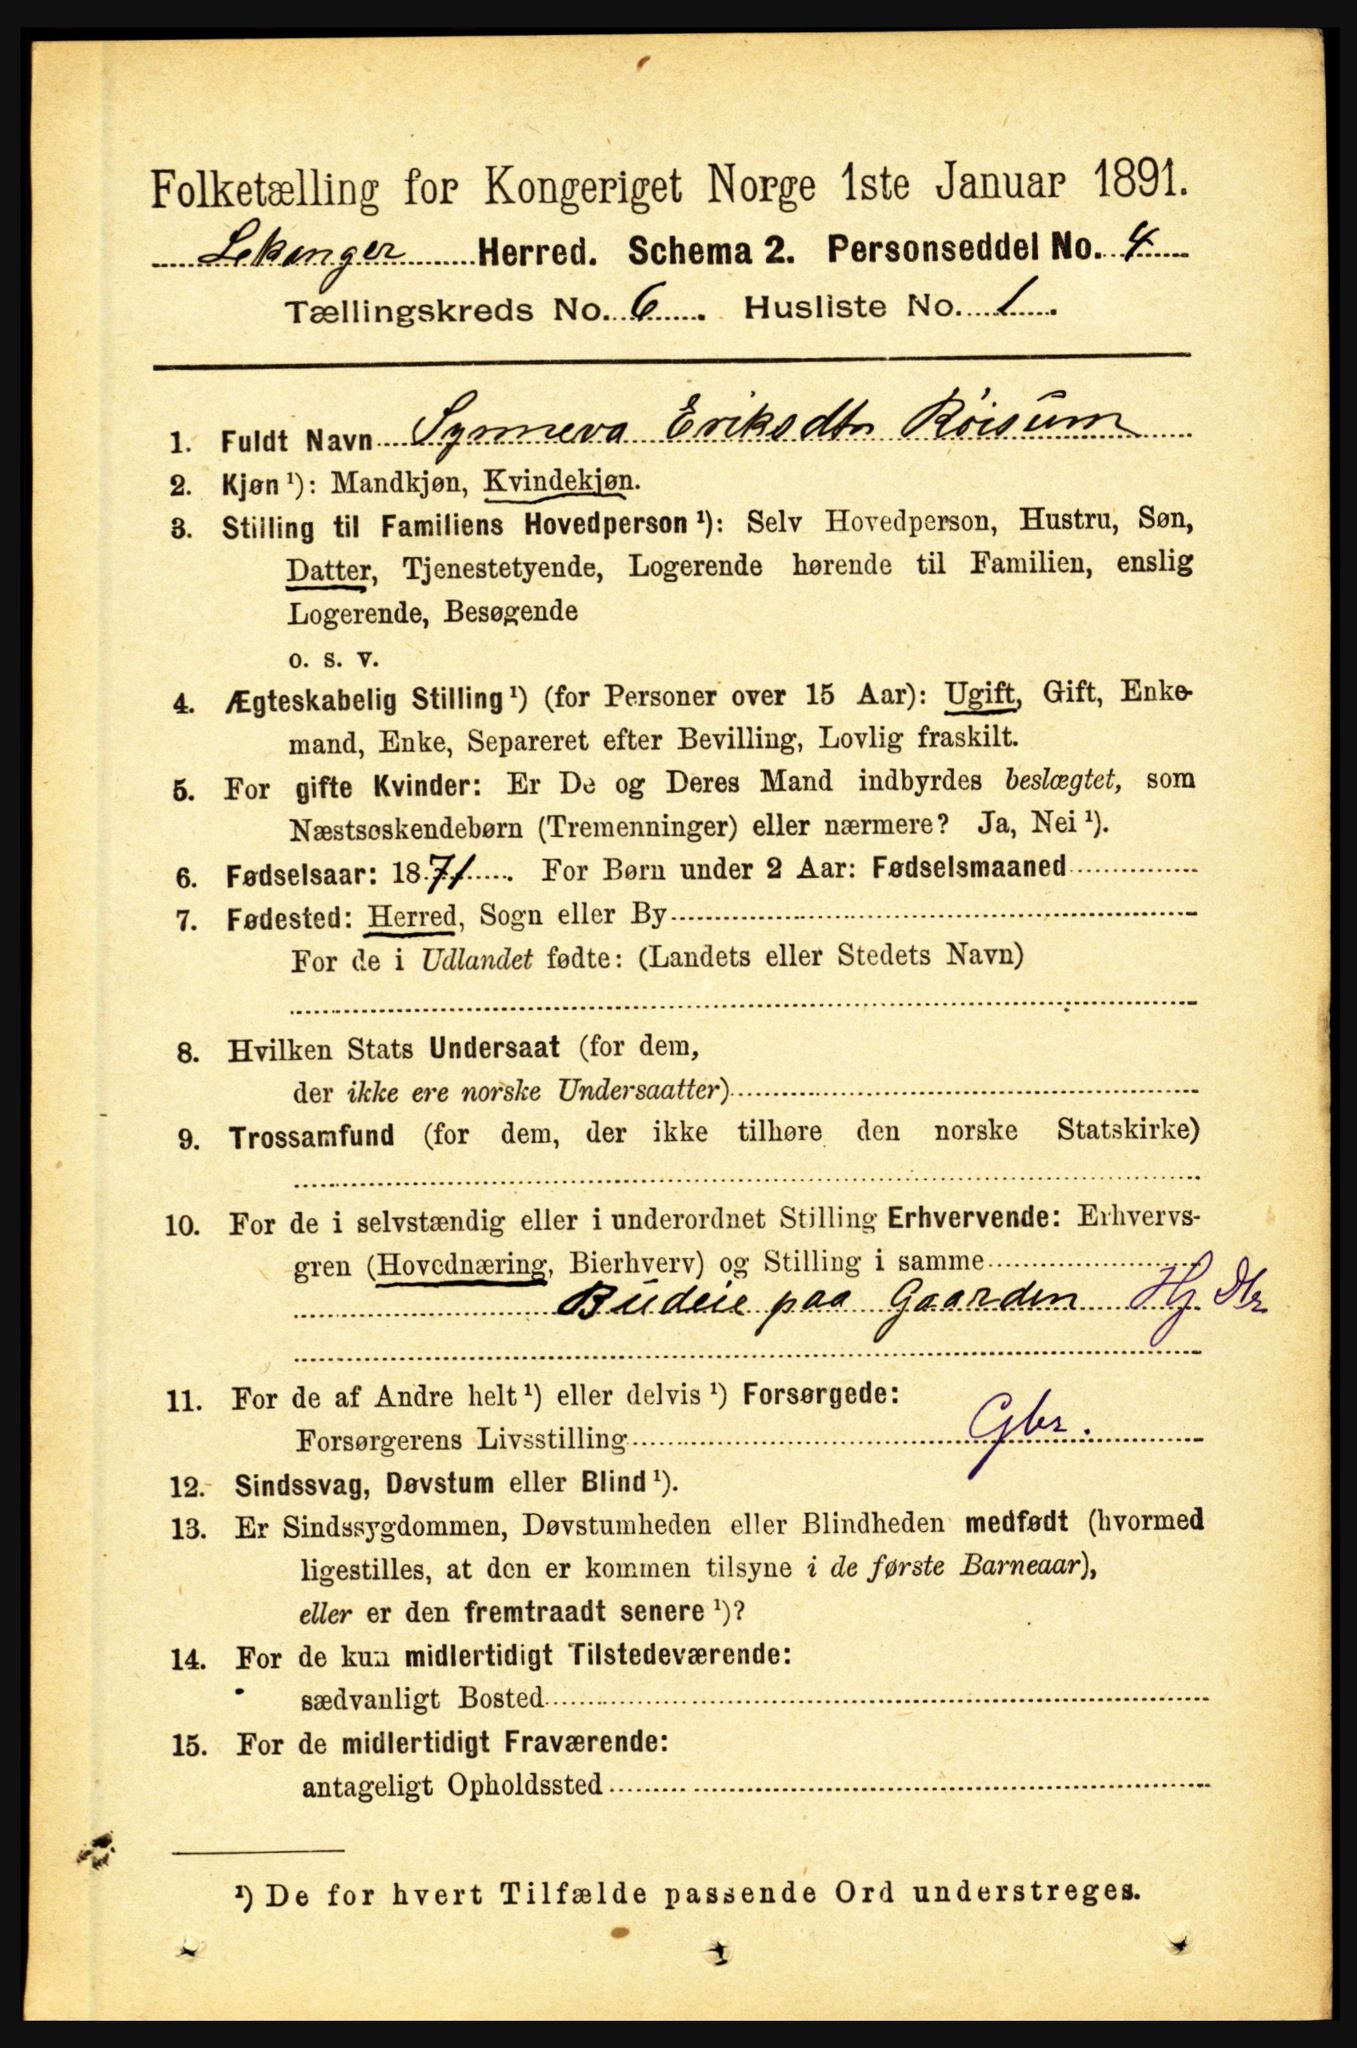 Folketælling for Kongeriget Norge 1ste Januar 1891.
Lekanger Herred. Schema 2. Personseddel No. 4
Tællingskreds No. 6. Husliste No. 1.
1. Fuldt Navn Synneva Eriksdtr Röisum
2. Kjøn ¹): Mandkjøn, Kvindekjøn.
3. Stilling til Familiens Hovedperson ¹): Selv Hovedperson, Hustru, Søn,
Datter, Tjenestetyende, Logerende hørende til Familien, enslig
Logerende, Besøgende
o. s. v.
4. Ægteskabelig Stilling ¹) (for Personer over 15 Aar): Ugift, Gift, Enke-
mand, Enke, Separeret efter Bevilling, Lovlig fraskilt.
5. For gifte Kvinder: Er De og Deres Mand indbyrdes beslægtet, som
Næstsøskendebørn (Tremenninger) eller nærmere? Ja, Nei ¹).
6. Fødselsaar: 1871. For Børn under 2 Aar: Fødselsmaaned
7. Fødested: Herred, Sogn eller By
For de i Udlandet fødte: (Landets eller Stedets Navn)
8. Hvilken Stats Undersaat (for dem,
der ikke ere norske Undersaatter)
9. Trossamfund (for dem, der ikke tilhøre den norske Statskirke)
10. For de i selvstændig eller i underordnet Stilling Erhvervende: Erhvervs-
gren (Hovednæring, Bierhverv) og Stilling i samme
Budeie paa Gaarden Hj Dtr
11. For de af Andre helt ¹) eller delvis ¹) Forsørgede:
Forsørgerens Livsstilling Gbr.
12. Sindssvag, Døvstum eller Blind ¹).
13. Er Sindssygdommen, Døvstumheden eller Blindheden medfødt (hvormed
ligestilles, at den er kommen tilsyne i de første Barneaar),
eller er den fremtraadt senere ¹)?
14. For de kun midlertidigt Tilstedeværende:
sædvanligt Bosted
15. For de midlertidigt Fraværende:
antageligt Opholdssted
¹) De for hvert Tilfælde passende Ord understreges.